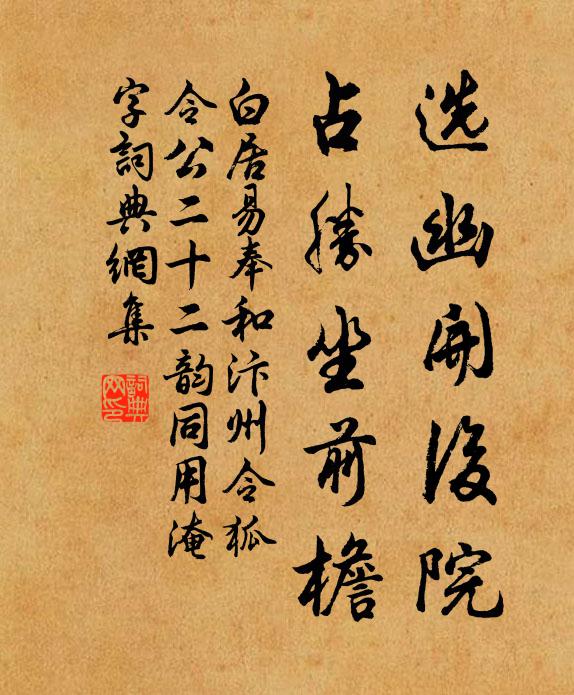 选幽開後院
占勝坐前檐
白居易奉和汴州令狐
令公二十二韵同用淹
字詞典網集
詞典
网印